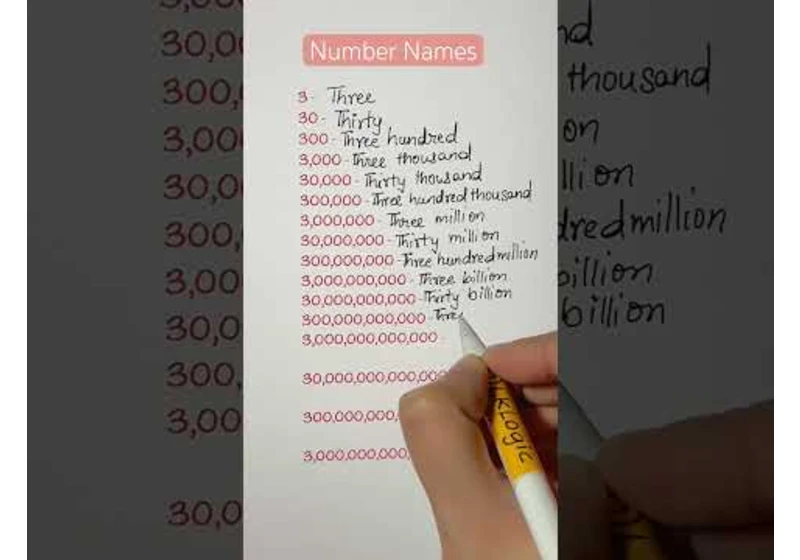 Number Names
3 - Three
30 - Thirty
300 - Three hundred
3,000 - Three thousand
30,000 - Thirty thousand
300,000 - Three hundred thousand
3,000,000 - Three million
30,000,000 - Thirty million
300,000,000 - Three hundred million
3,000,000,000 - Three billion
30,000,000,000 - Thirty billion
300,000,000,000 - Three
3,000,000,000,000
30,000,000,000,000
300,000,000,
3,000,000,000,